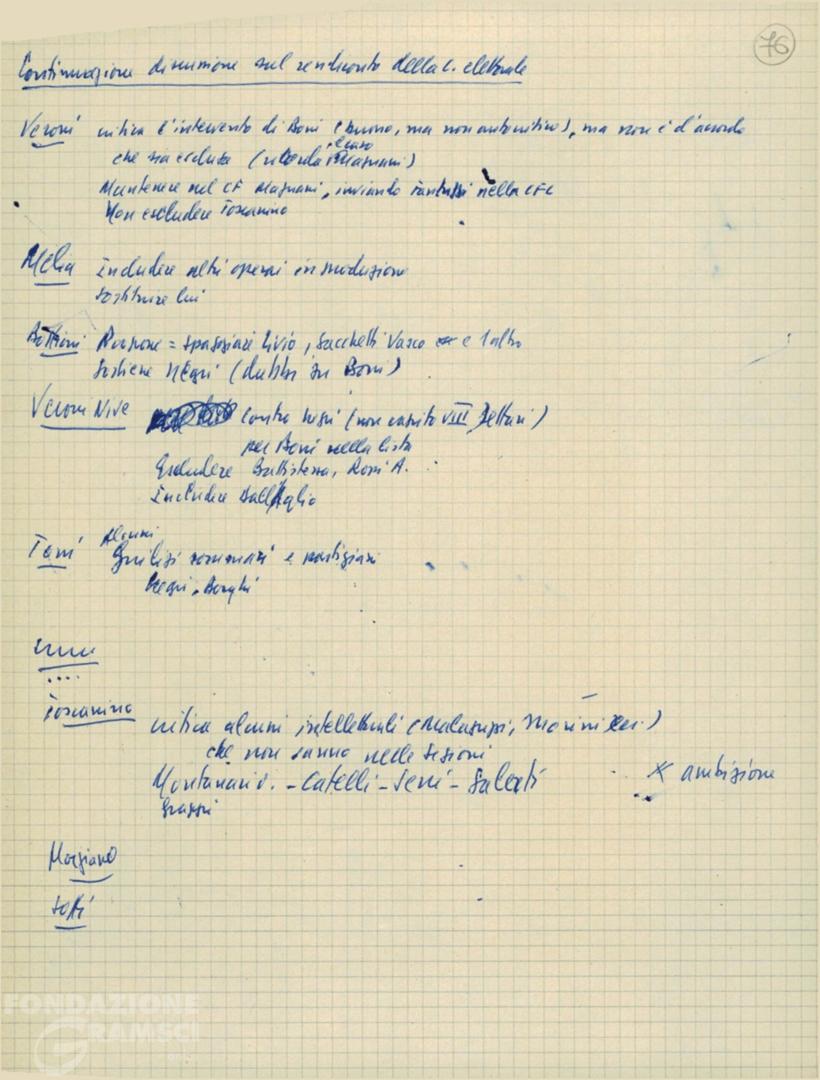 76
Continuazione discussione sul rendiconto della C. elettorale
Veroni critica l'intervento di Boni (buono, ma non autocritico), ma non è d'accordo
che sia escluso (ricorda il caso Magnani)
Mantenere nel CF Magnani, inviando Fantuzzi nella CFC
Non escludere Toscanino
Melia Includere altri operai in produzione
sostituire lui
Propone = Spaggiari Livio, Sacchetti Vasco e 1 altro
Sostiene Negri (dubbi su Boni)
Veroni Nive contro Negri (non capito VIII Betturi)
per Boni nella lista
Escludere Battistessa, Boni A.
Includere Dall'Aglio
Alcuni
giudizi sommari e partigiani
Negri, Borghi
....
Toscanino critica alcuni intellettuali (Malaguzzi, Morini
che non vanno nelle sezioni
Montanari O. - Catelli - Seni - Salsati
x ambizione
Morgiano
Sotti
FONDAZIONE
GRAMSCI